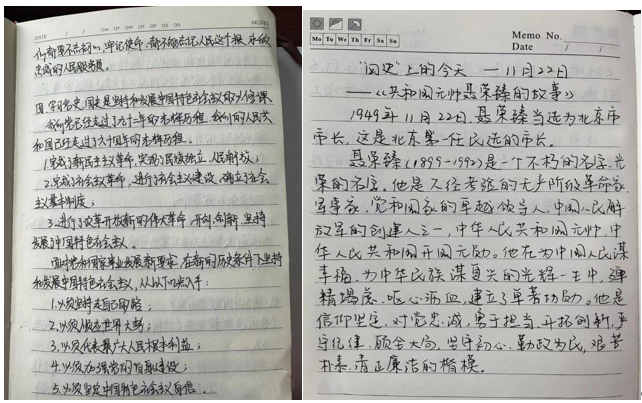 DATE / /
NOTES
们都要不忘初心,牢记使命,都不能忘记人民这个根,永做
忠诚的人民服务员。
四、学习党史、国史是坚持和发展中国特色社会主义的必修课
我们党已经走过了九十二年的光辉历程,我们的人民共
和国已经走过了六十四年的光辉历程。
1.完成了新民主主义革命,实现了民族独立、人民解放;
2.完成了社会主义革命,进行了社会主义建设,确立了社会
主义基本制度;
3.进行了改革开放新的伟大革命,开创、坚持
发展了中国特色社会主义。
面对党和国家事业发展新要求,在新的历史条件下坚持
和发展中国特色社会主义,从以下几点入手:
1.必须坚持走自己的路;
2.必须顺应世界大势;
3.必须代表最广大人民根本利益;
4.必须加强党的自身建设;
5.必须坚定中国特色社会主义自信。
Mo Tu We Th Fr Sa Su
Memo No.
Date / /
上的今天 — 11月22日
——《共和国元帅聂荣臻的故事》
1949年11月22日,聂荣臻当选为北京市
市长,这是北京第一任民选的市长。
聂荣臻(1899-1992)是一个不朽的名字,光
荣的名字。他是久经考验的无产阶级革命家、
军事家,党和国家的卓越领导人,中国人民解
放军的创建人之一,中华人民共和国元帅,中
华人民共和国开国元勋。他在为中国人民谋
幸福、为中华民族谋复兴的光辉一生中,殚
精竭虑、呕心沥血,建立了卓著功勋。他是
信仰坚定、对党忠诚,勇于担当、开拓创新,严
守纪律、顾全大局,坚守初心、勤政为民,艰苦
朴素、清正廉洁的楷模。